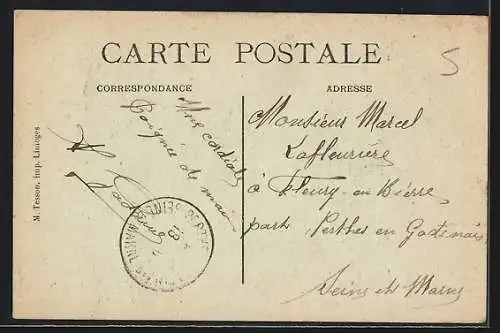 CARTE POSTALE
CORRESPONDANCE
ADRESSE
M. Tesson, imp. Limoges
Une cordiale
Poignée de main
Monsieur Marcel
Lafleurière
à Fleury-en-Bierre
part Perthes en Gatinais
Seine et Marne
5